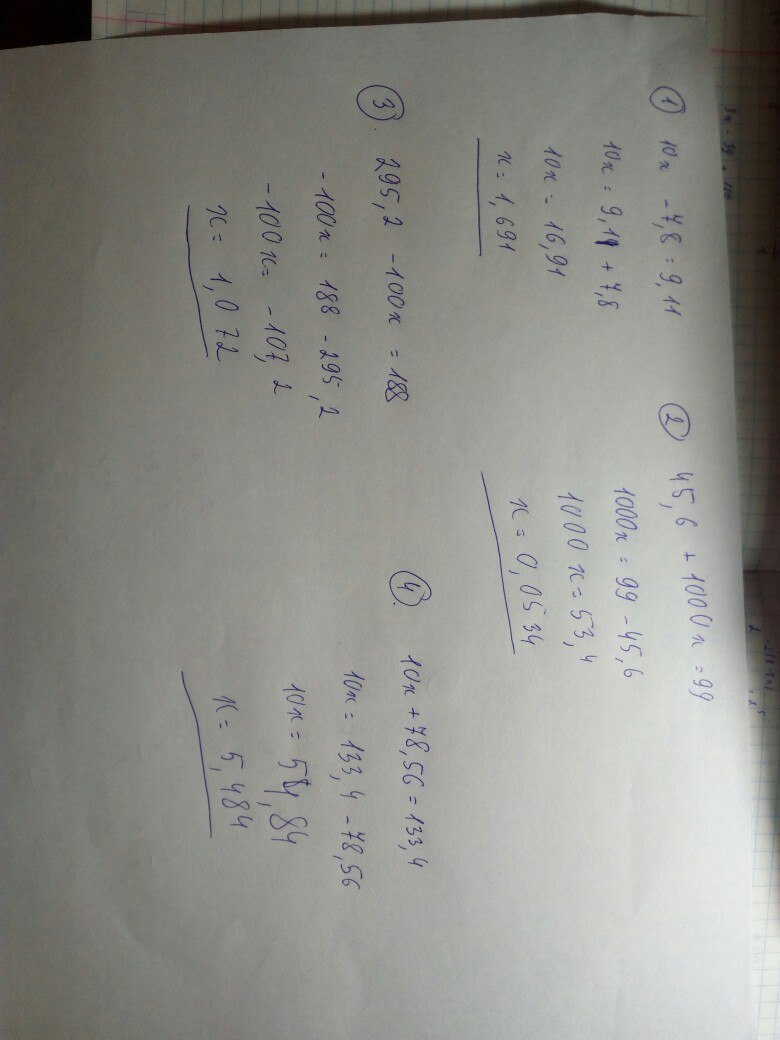 ① 10x - 7,8 = 9,11
10x = 9,11 + 7,8
10x = 16,91
x = 1,691
② 45,6 + 1000x = 99
1000x = 99 - 45,6
1000x = 53,4
x = 0,0534
③. 295,2 - 100x = 188
-100x = 188 - 295,2
-100x = -107,2
x = 1,072
④. 10x + 78,56 = 133,4
10x = 133,4 - 78,56
10x = 54,84
x = 5,484